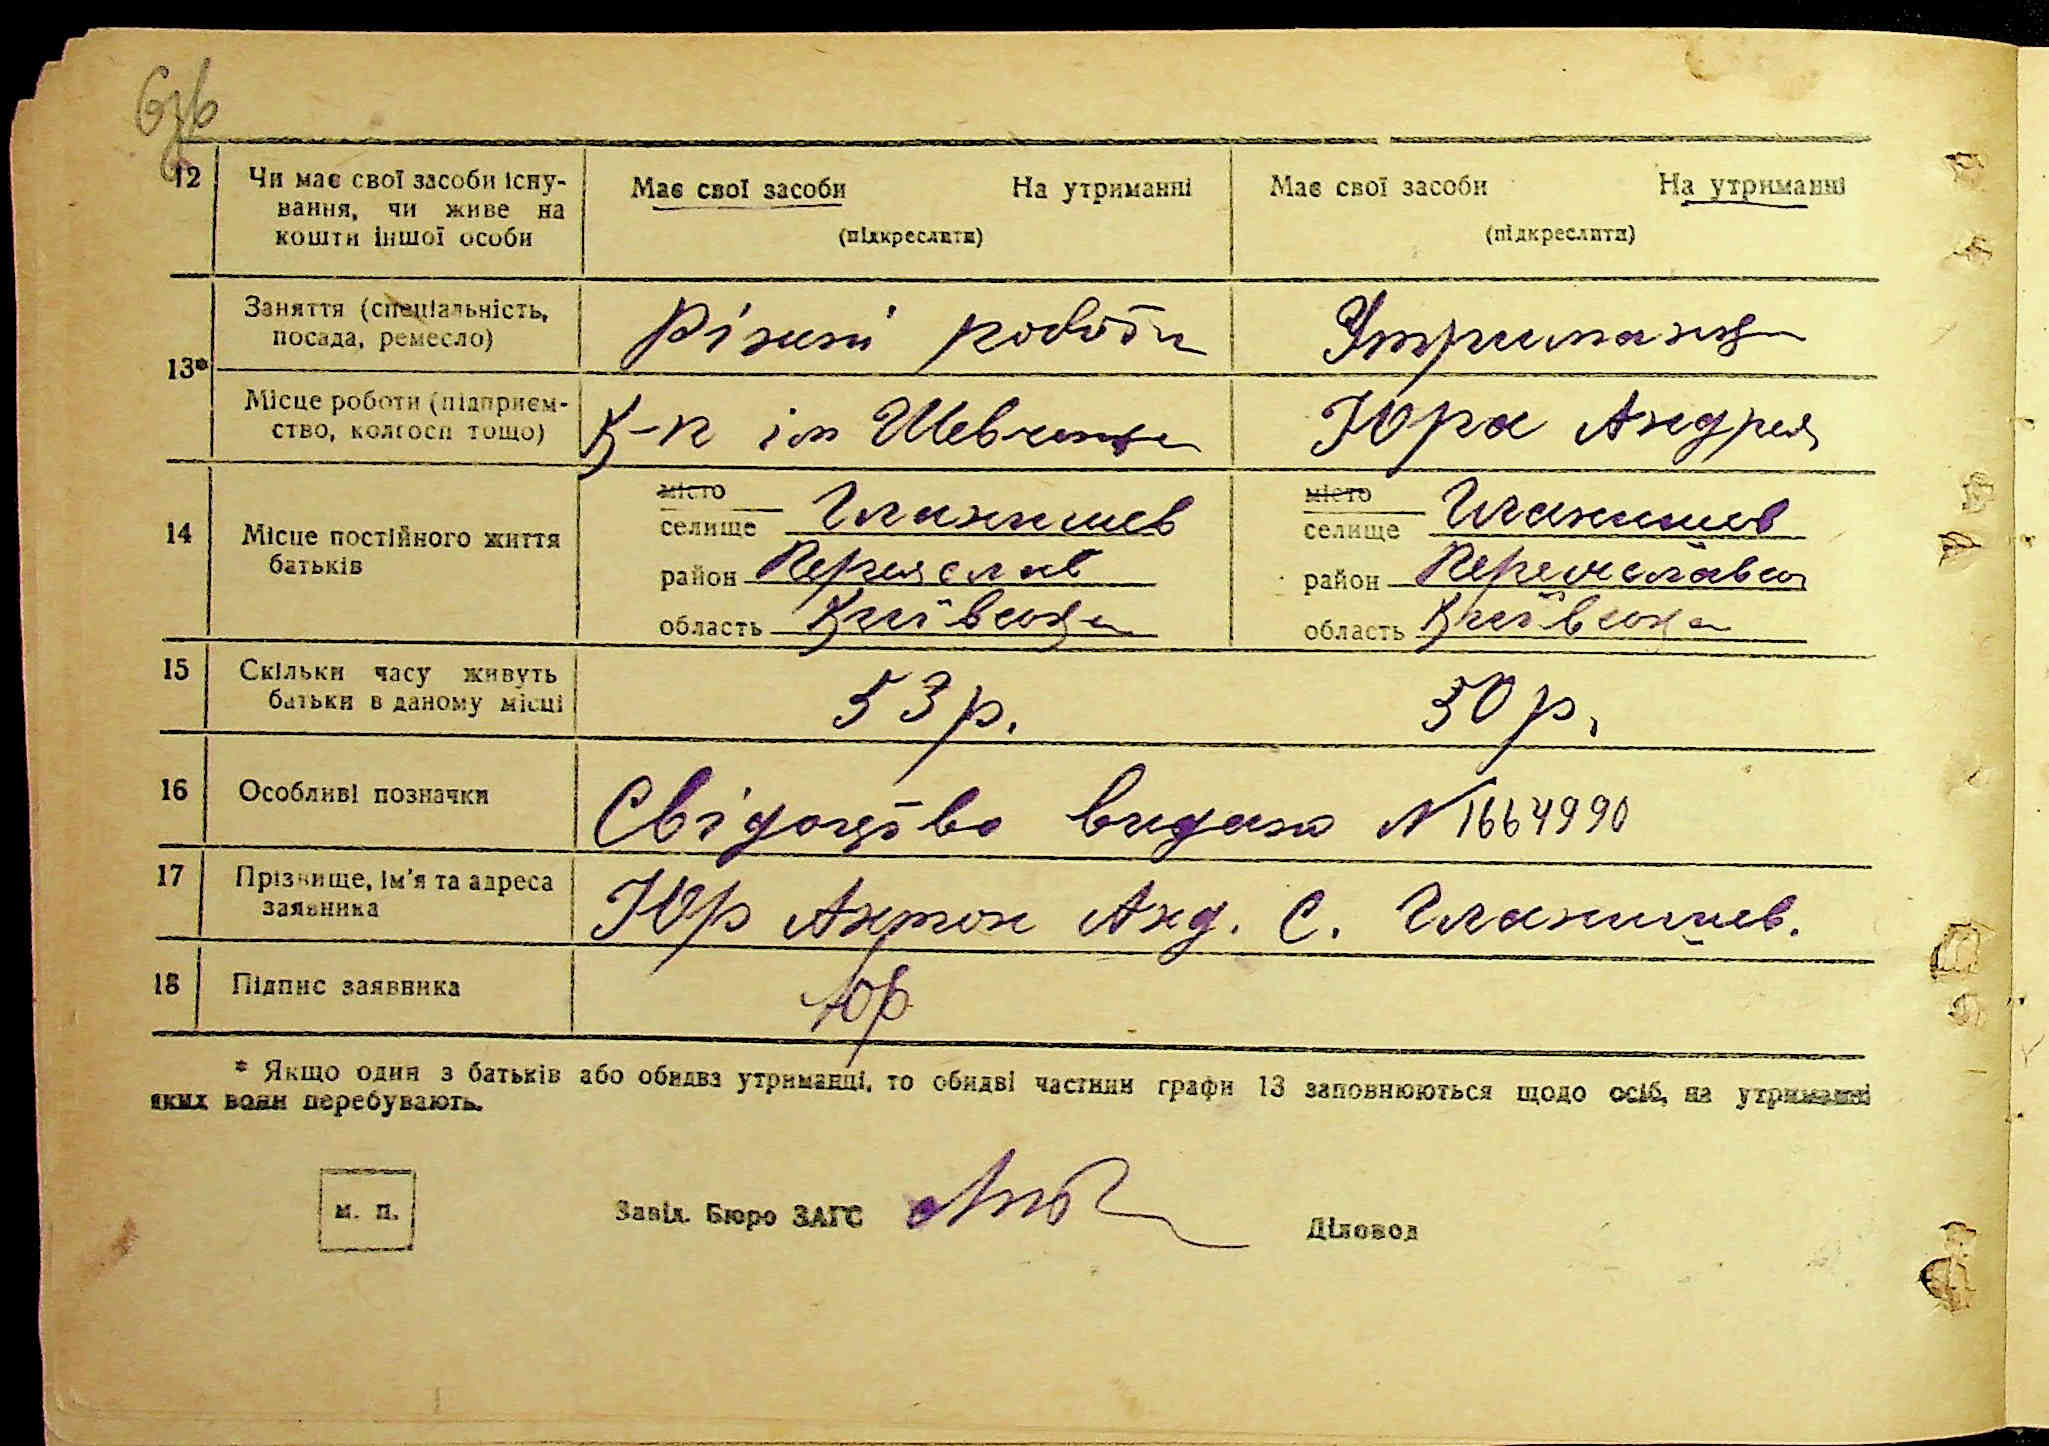 12 Чи має свої засоби існу-
вання, чи живе на
кошти іншої особи
Має свої засоби На утриманні
(підкреслити)
Має свої засоби На утриманні
(підкреслити)
13*
Заняття (спеціальність,
посада, ремесло)
Різині роботи
Утриманця
Місце роботи (підприєм-
ство, колгосп тощо)
К-п ім Шевченка
Юра Андрея
14 Місце постійного життя
батьків
місто
селище Гланишев
район Переяслав
область Київська
місто
селище Гланишев
район Переяславськ
область Київська
15 Скільки часу живуть
батьки в даному місці
53 р. 30 р.
16 Особливі позначки
Свідоцтво видано N 1664990
17 Прізвище, ім'я та адреса
заявника
Юр Антон Анд. С. Гланишев.
18 Підпис заявника
Юр
* Якщо один з батьків або обидва утриманці, то обидві частини графи 13 заповнюються щодо осіб, на утриманні
яких вони перебувають.
м. п.
Завід. Бюро ЗАГС
Діловод